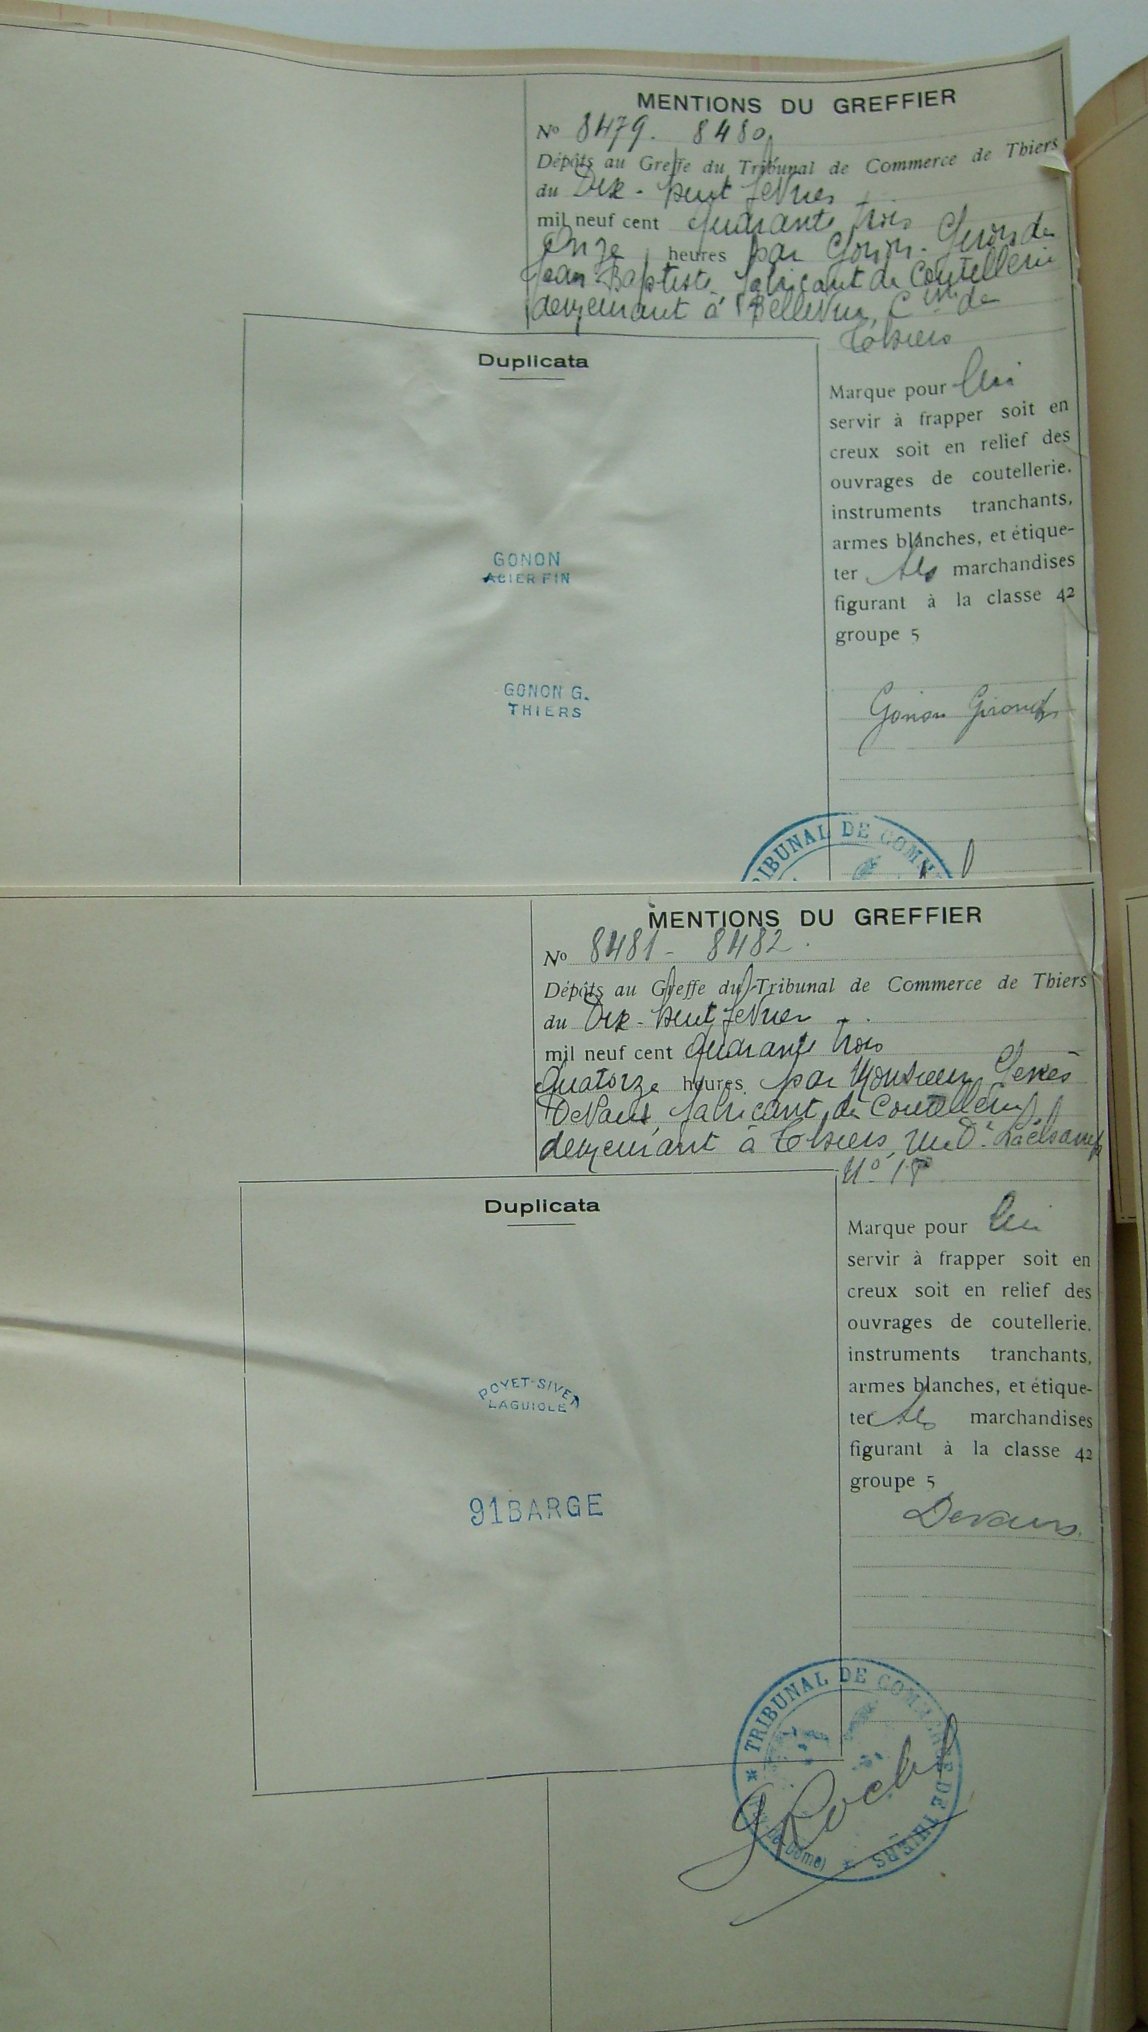 MENTIONS DU GREFFIER
No 8479. 8480.
Dépôts au Greffe du Tribunal de Commerce de Thiers
du Dix-huit février
mil neuf cent quarante trois
Onze heures par Gonon-Gironde
Jean-Baptiste fabricant de coutellerie
demeurant à Bellevue, Cne de
Thiers
Duplicata
Marque pour lui
servir à frapper soit en
creux soit en relief des
ouvrages de coutellerie.
instruments tranchants,
armes blanches, et étique-
ter ses marchandises
figurant à la classe 42
groupe 5
GONON
ACIER FIN
GONON G.
THIERS
Gonon Gironde
TRIBUNAL DE COMM
MENTIONS DU GREFFIER
No 8481 - 8482.
Dépôts au Greffe du Tribunal de Commerce de Thiers
du Dix-huit février
mil neuf cent quarante trois
Quatorze heures par Monsieur Genès
Devaux fabricant de coutellerie
demeurant à Thiers, rue Dr Lachamp
No
Duplicata
Marque pour lui
servir à frapper soit en
creux soit en relief des
ouvrages de coutellerie.
instruments tranchants,
armes blanches, et étique-
ter ses marchandises
figurant à la classe 42
groupe 5
POYET-SIVET
LAGUIOLE
91 BARGE
Devaux
* TRIBUNAL DE COMMERCE DE THIERS *